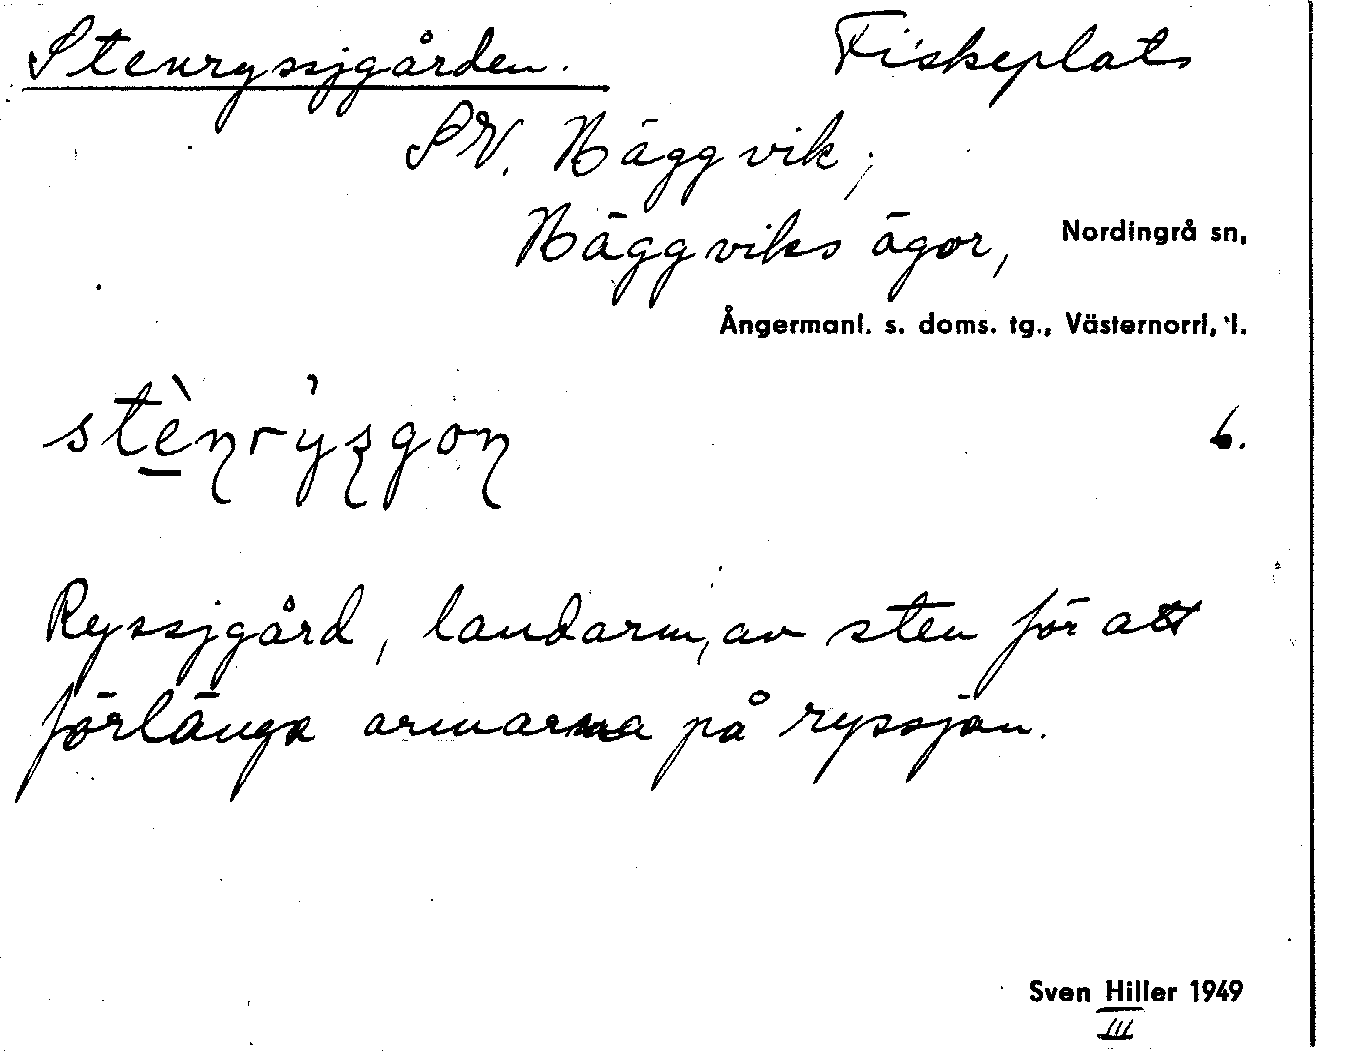 Stenryssjgården. Fiskeplats
SV. Häggvik,
Häggviks ägor, Nordingrå sn,
Ångermanl. s. doms. tg., Västernorrl. l.
6.
Ryssjgård, landarm, av sten för att
förlänga armarna på ryssjan.
Sven Hiller 1949
III